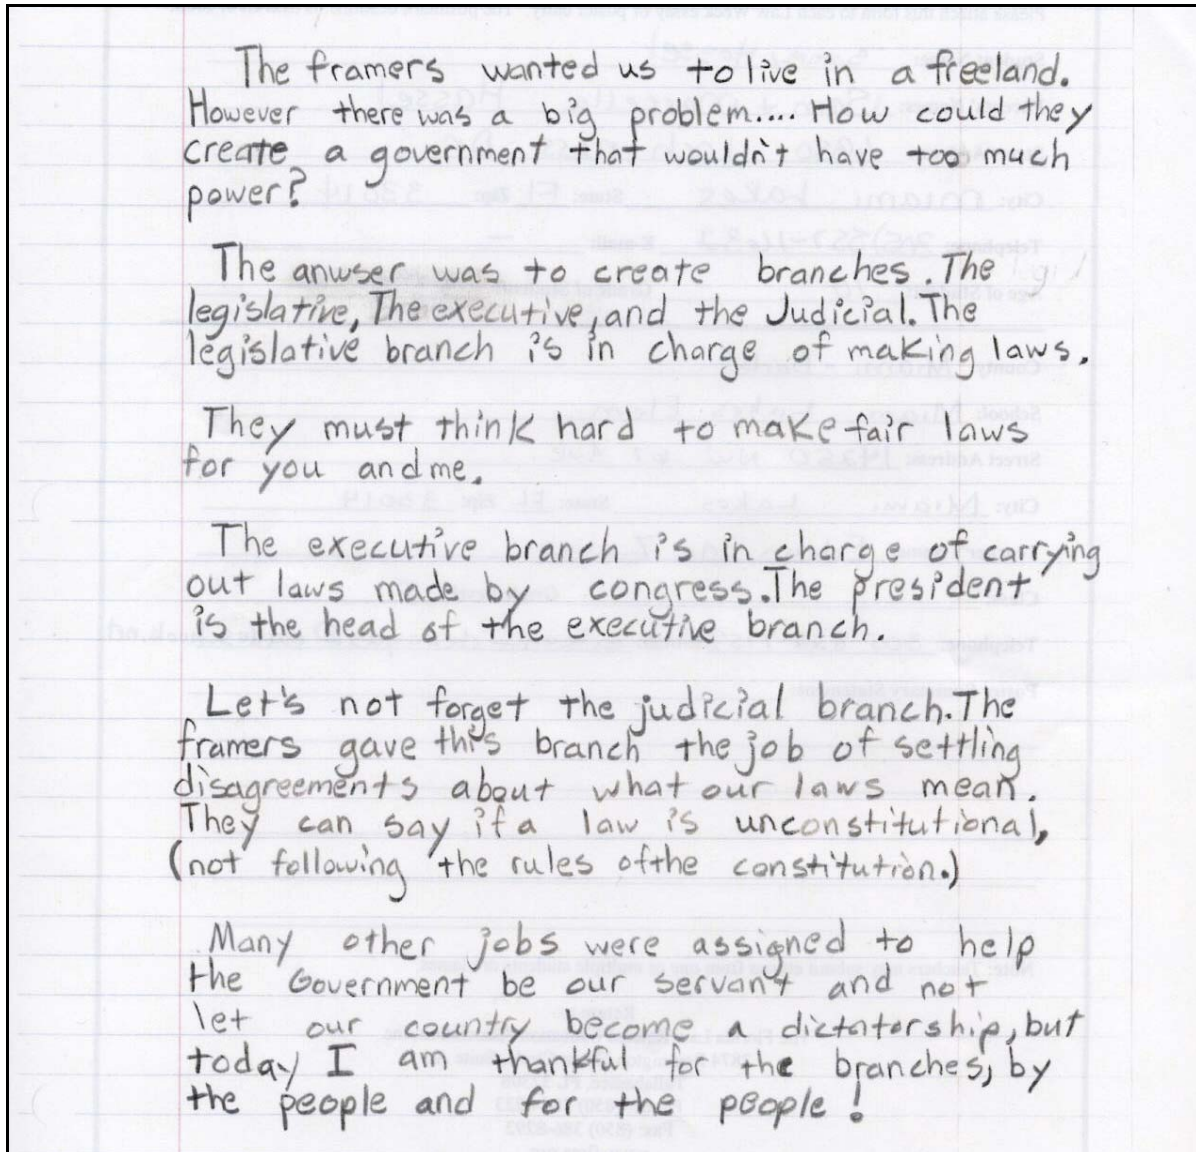 The framers wanted us to live in a freeland.
However there was a big problem.... How could they
create a government that wouldn't have too much
power?
The anwser was to create branches. The
legislative, The executive, and the Judicial. The
legislative branch is in charge of making laws.
They must think hard to make fair laws
for you and me.
The executive branch is in charge of carrying
out laws made by congress. The president
is the head of the executive branch.
Let's not forget the judicial branch. The
framers gave this branch the job of settling
disagreements about what our laws mean.
They can say if a law is unconstitutional,
(not following the rules of the constitution.)
Many other jobs were assigned to help
the Government be our servant and not
let our country become a dictatorship, but
today I am thankful for the branches, by
the people and for the people!